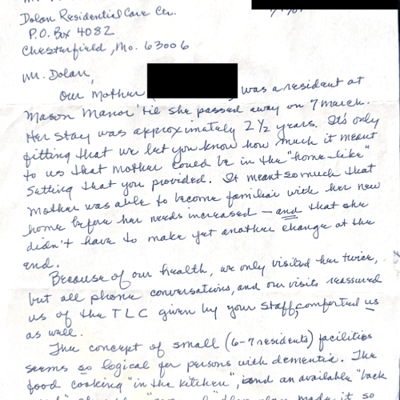 Dolan Residential Care Ctr.
P.O. Box 4082
Chesterfield, Mo. 63006
Mr. Dolan,
Our Mother was a resident at
Mason Manor 'til she passed away on 7 March.
Her stay was approximately 2 ½ years. It's only
fitting that we let you know how much it meant
to us that Mother could be in the "home-like"
setting that you provided. It meant so much that
Mother was able to become familiar with her new
home before her needs increased — and that she
didn't have to make yet another change at the
end.
Because of our health, we only visited her twice,
but all phone conversations, and our visits reassured
us of the TLC given by your staff, comforted us
as well.
The concept of small (6-7 residents) facilities
seems so logical for persons with dementia. The
food cooking "in the kitchen", and an available "back
made it so